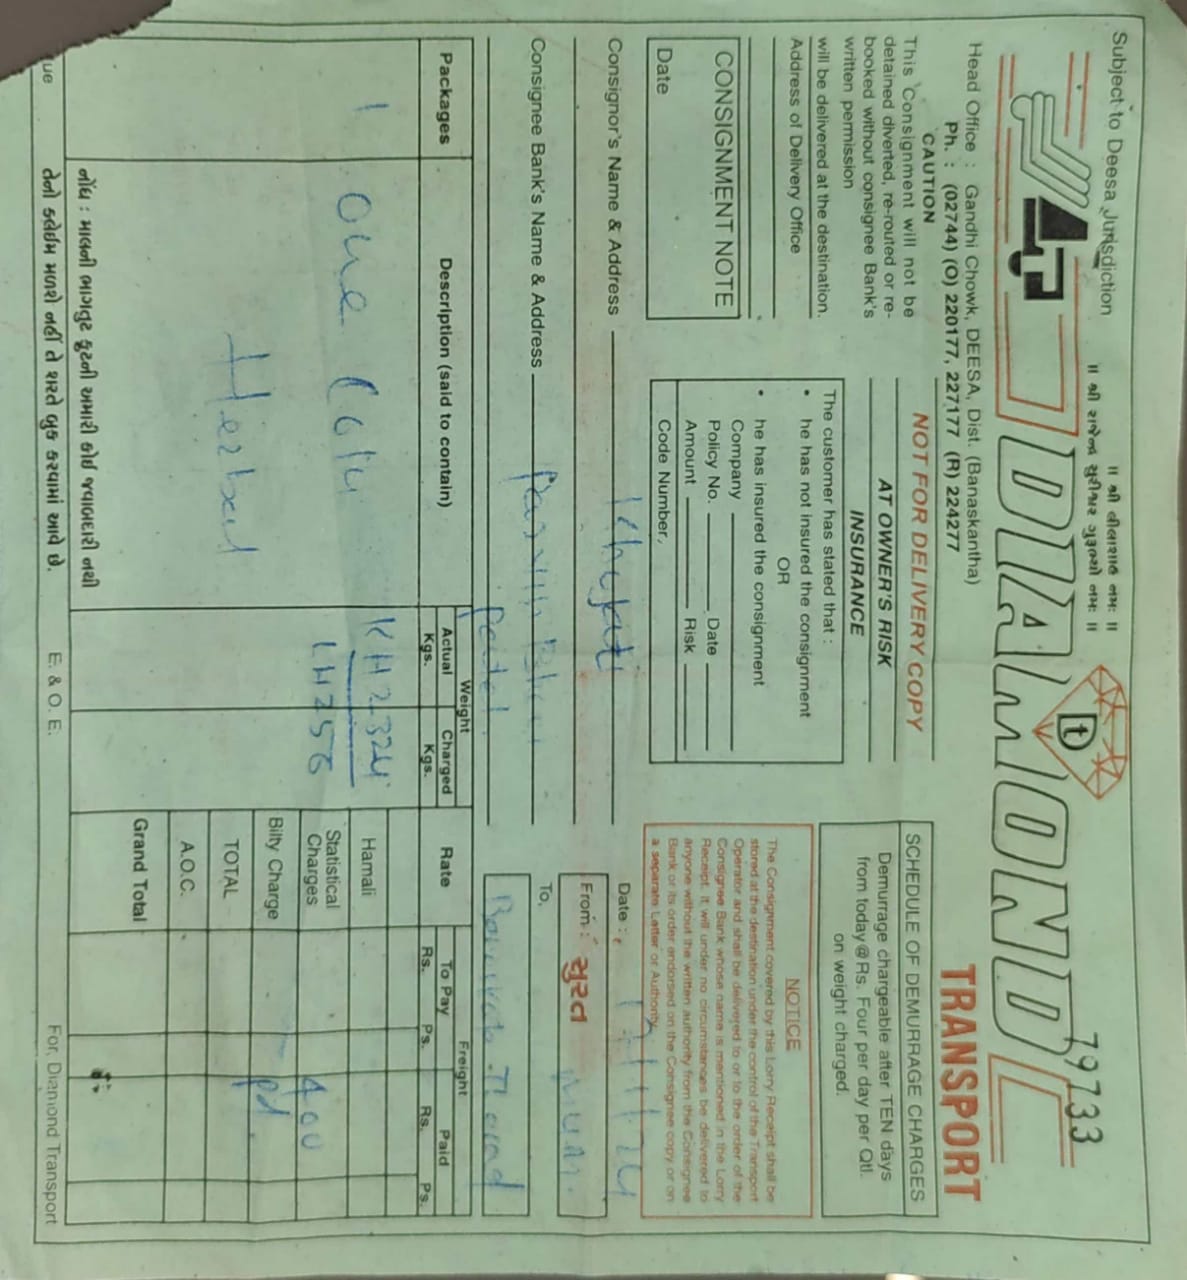 Subject to Deesa Jurisdiction
॥ શ્રી લીલાશાહ નમઃ ॥
॥ શ્રી રાજેન્દ્ર સુરીશ્વર ગુરૂભ્યો નમઃ ॥
79733
DIAMOND
t
TRANSPORT
Head Office : Gandhi Chowk, DEESA, Dist. (Banaskantha)
Ph. : (02744) (O) 220177, 227177 (R) 224277
CAUTION
This Consignment will not be
detained diverted, re-routed or re-
booked without consignee Bank's
written permission
will be delivered at the destination.
Address of Delivery Office
CONSIGNMENT NOTE
Date
NOT FOR DELIVERY COPY
AT OWNER'S RISK
INSURANCE
The customer has stated that :
• he has not insured the consignment
OR
• he has insured the consignment
Company
Policy No. Date
Amount Risk
Code Number.
SCHEDULE OF DEMURRAGE CHARGES
Demurrage chargeable after TEN days
from today@Rs. Four per day per Qtl.
on weight charged.
NOTICE
The Consignment covered by this Lorry Receipt shall be
stored at the destination under the control of the Transport
Operator and shall be delivered to or to the order of the
Consignee Bank whose name is mentioned in the Lorry
Receipt. It will under no circumstances be delivered to
anyone without the written authority from the Consignee
Bank or its order endorsed on the Consignee copy or on
a separate Letter or Authority.
Consignor's Name & Address
Date :
From : સુરત
Consignee Bank's Name & Address
To,
Packages
Description (said to contain)
Weight
Actual Kgs.
Charged Kgs.
Rate
Freight
To Pay
Rs. Ps.
Paid
Rs. Ps.
1
One
Herbal
KH2324
LH256
Hamali
Statistical Charges 400
Bilty Charge
TOTAL pd.
A.O.C.
Grand Total
નોંધ : માલની ભાગતુટ ફુટની અમારી કોઇ જવાબદારી નથી
તેનો કલેઇમ મળશે નહીં તે શરતે બુક કરવામાં આવે છે.
E. & O. E.
For, Diamond Transport